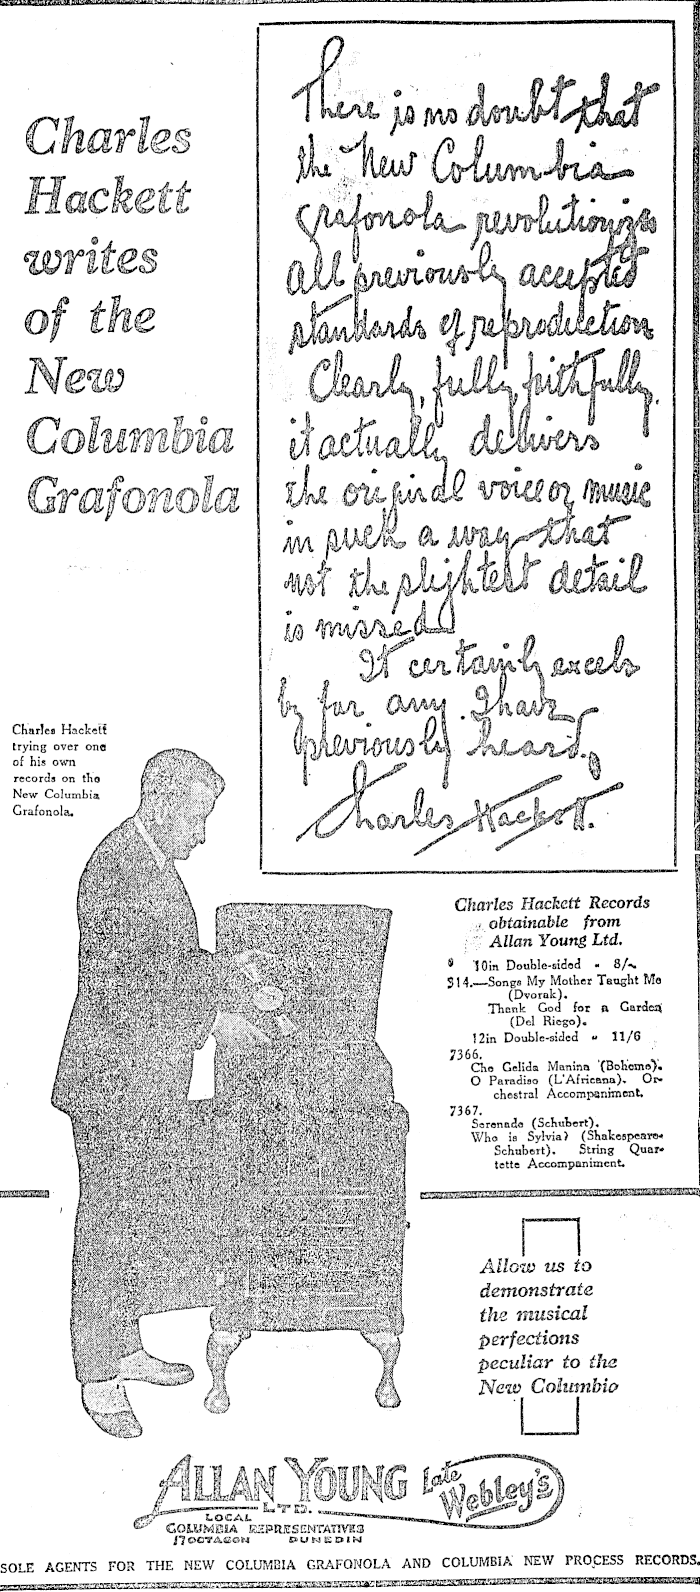 Charles
Hackett
writes
of the
New
Columbia
Grafonola
There is no doubt that
the New Columbia
Grafonola revolutionizes
all previously accepted
standards of reproduction
Clearly, fully, faithfully,
it actually delivers
the original voice or music
in such a way that
not the slightest detail
is missed
It certainly excels
by far any I have
previously heard.
Charles Hackett.
Charles Hackett
trying over one
of his own
records on the
New Columbia
Grafonola.
Charles Hackett Records
obtainable from
Allan Young Ltd.
10in Double-sided - 8/-
314.—Songs My Mother Taught Me
(Dvorak).
Thank God for a Garden
(Del Riego).
12in Double-sided - 11/6
7366.
Che Gelida Manina (Boheme).
O Paradiso (L'Africana). Or-
chestral Accompaniment.
7367.
Serenade (Schubert).
Who is Sylvia? (Shakespeare-
Schubert). String Quar-
tette Accompaniment.
Allow us to
demonstrate
the musical
perfections
peculiar to the
New Columbia
ALLAN YOUNG LTD. Late Webley's
LOCAL
COLUMBIA REPRESENTATIVES
17 OCTAGON DUNEDIN
SOLE AGENTS FOR THE NEW COLUMBIA GRAFONOLA AND COLUMBIA NEW PROCESS RECORDS.